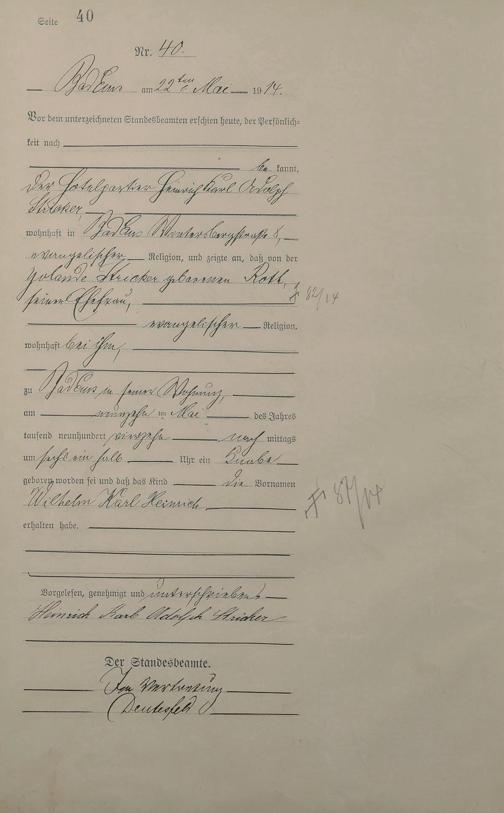 Seite 40
Nr. 40.
Bad Ems am 22ten Mai 1914.
Vor dem unterzeichneten Standesbeamten erschien heute, der Persönlich-
keit nach
be kannt,
der Hotelportier Heinrich Karl Adolph
Stricker,
wohnhaft in Bad Ems Wintersbergstraße 8,
evangelischer Religion, und zeigte an, daß von der
Yolande Stricker geborenen Roth,
seiner Ehefrau,
82/14
evangelischer Religion,
wohnhaft bei ihm,
zu Bad Ems in seiner Wohnung,
am Mai des Jahres
tausend neunhundert vierzehn nach mittags
um sechs ein halb Uhr ein Knabe
geboren worden sei und daß das Kind die Vornamen
Wilhelm Karl Heinrich
erhalten habe.
87/14
Vorgelesen, genehmigt und unterschrieben
Heinrich Karl Adolph Stricker
Der Standesbeamte.
In Vertretung